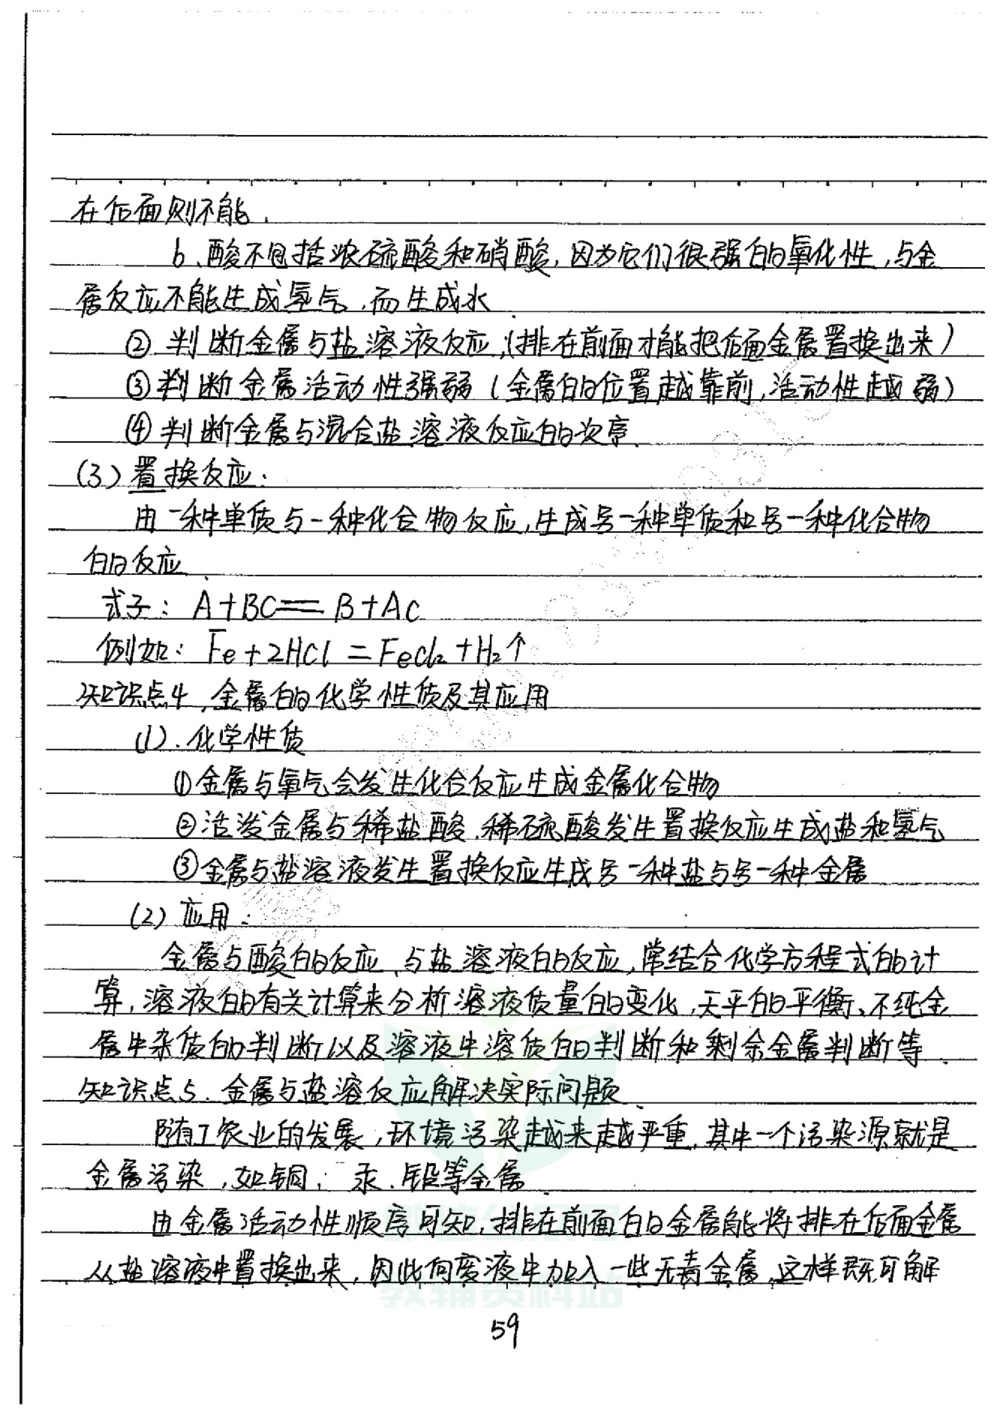 在后面则不能.
b、酸不包括浓硫酸和硝酸,因为它们很强的氧化性,与金
属反应不能生成氢气,而生成水
② 判断金属与盐溶液反应,(排在前面才能把后面金属置换出来)
③判断金属活动性强弱(金属的位置越靠前,活动性越弱)
④判断金属与混合盐溶液反应的次序.
(3)置换反应:
由一种单质与一种化合物反应,生成另一种单质和另一种化合物
的反应.
式子: A+BC══B+AC
例如: Fe+2HCl=FeCl₂+H₂↑
知识点4.金属的化学性质及其应用
(1).化学性质
①金属与氧气会发生化合反应生成金属化合物
②活泼金属与稀盐酸.稀硫酸发生置换反应生成盐和氢气
③金属与盐溶液发生置换反应生成另一种盐与另一种金属
(2)应用:
金属与酸的反应、与盐溶液的反应,常结合化学方程式的计
算,溶液的有关计算来分析溶液质量的变化,天平的平衡、不纯金
属中杂质的判断以及溶液中溶质的判断和剩余金属判断等.
知识点5.金属与盐溶反应解决实际问题.
随着工农业的发展,环境污染越来越严重,其中一个污染源就是
金属污染,如铜、汞.铅等金属.
由金属活动性顺序可知,排在前面的金属能将排在后面金属
从盐溶液中置换出来,因此向废液中加入一些无毒金属,这样既可解
教辅资料站
59